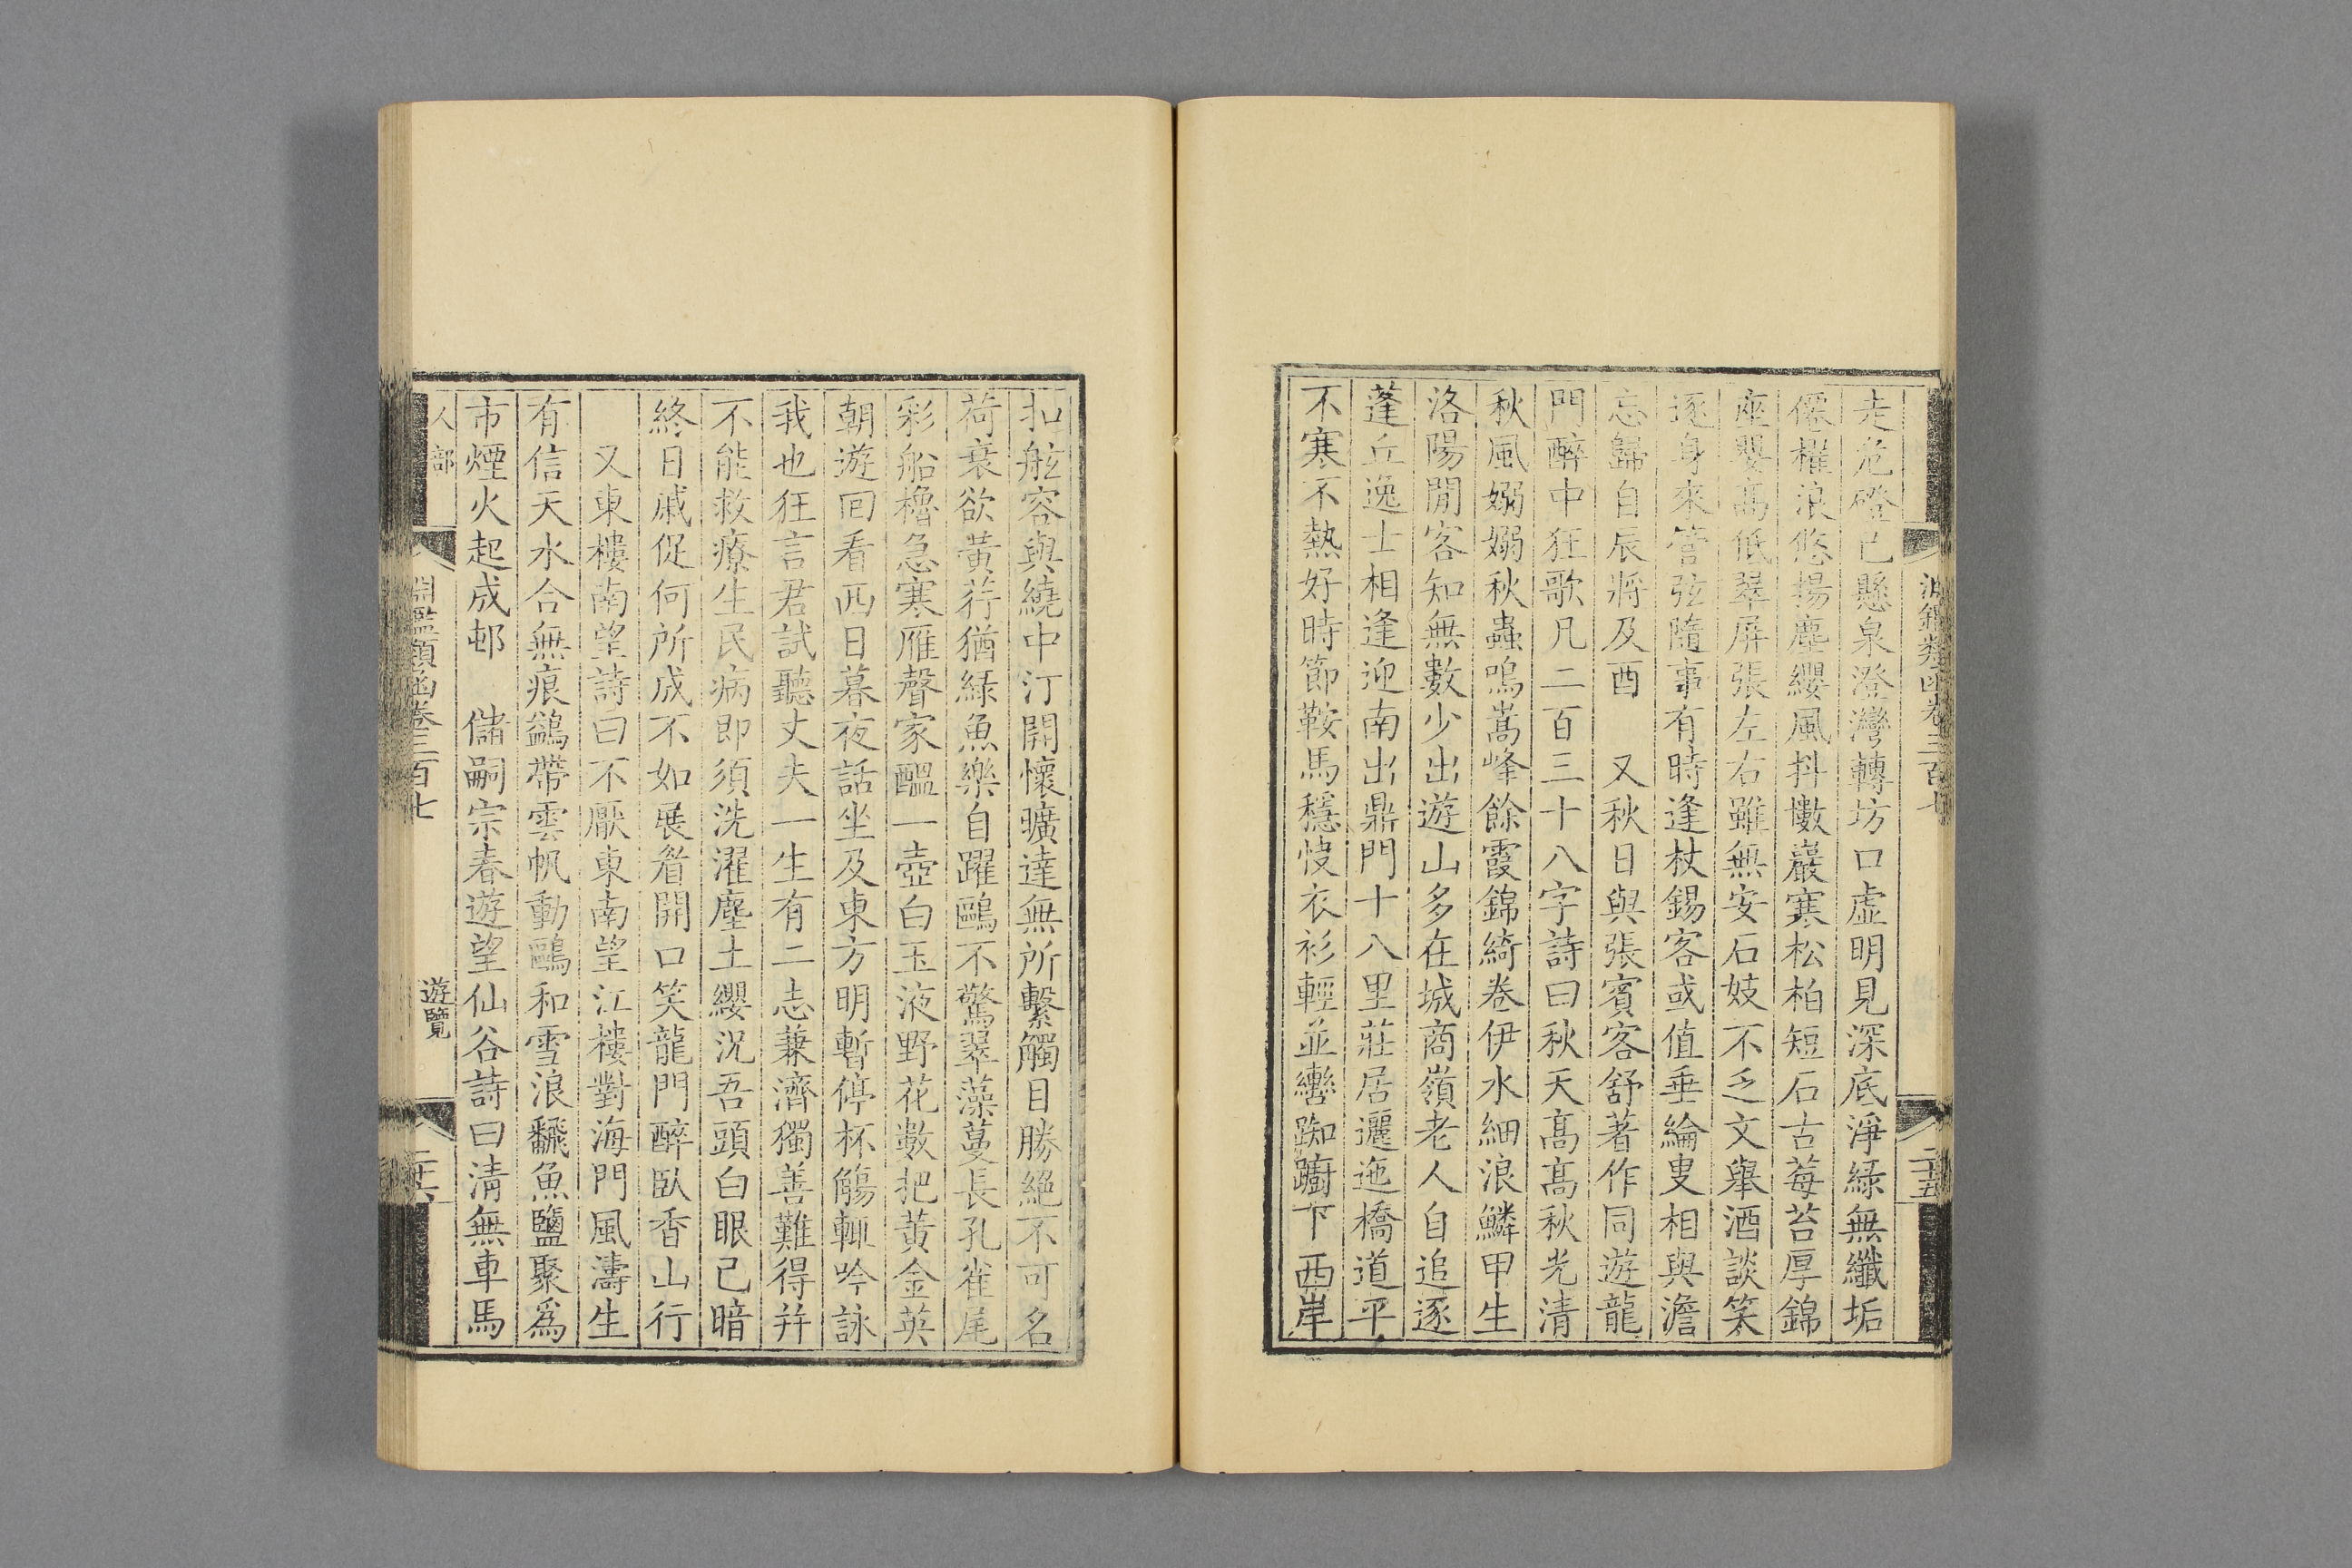 淵鑑類函卷三百七
二十五
走危磴已懸泉澄灣轉坊口虛明見深底淨綠無纖垢
僊櫂浪悠揚塵纓風抖擻巖寒松柏短石古莓苔厚錦
座纓高低翠屏張左右雖無安石妓不乏文舉酒談笑
逐身來管弦隨事有時逢杖錫客或值垂綸叟相與澹
忘歸自辰將及酉　又秋日與張賓客舒著作同遊龍
門醉中狂歌凡二百三十八字詩曰秋天高高秋光清
秋風嫋嫋秋蟲鳴嵩峰餘霞錦綺卷伊水細浪鱗甲生
洛陽閒客知無數少出遊山多在城商嶺老人自追逐
蓬丘逸士相逢迎南出鼎門十八里莊居邐迤橋道平
不寒不熱好時節鞍馬穩快衣衫輕並轡踟躕下西岸
扣舷容與繞中汀開懷曠達無所繫觸目勝絕不可名
荷衰欲黃荇猶綠魚樂自躍鷗不驚翠藻蔓長孔雀尾
彩船櫓急寒雁聲家醞一壺白玉液野花數把黃金英
朝遊回看西日暮夜話坐及東方明暫停杯觴輒吟詠
我也狂言君試聽丈夫一生有二志兼濟獨善難得并
不能救療生民病即須洗濯塵土纓況吾頭白眼已暗
終日戚促何所成不如展眉開口笑龍門醉臥香山行
又東樓南望詩曰不厭東南望江樓對海門風濤生
有信天水合無痕鷁帶雲帆動鷗和雪浪飜魚鹽聚爲
市煙火起成邨　儲嗣宗春遊望仙谷詩曰清無車馬
人部
淵鑑類函卷三百七
遊覽
二十六